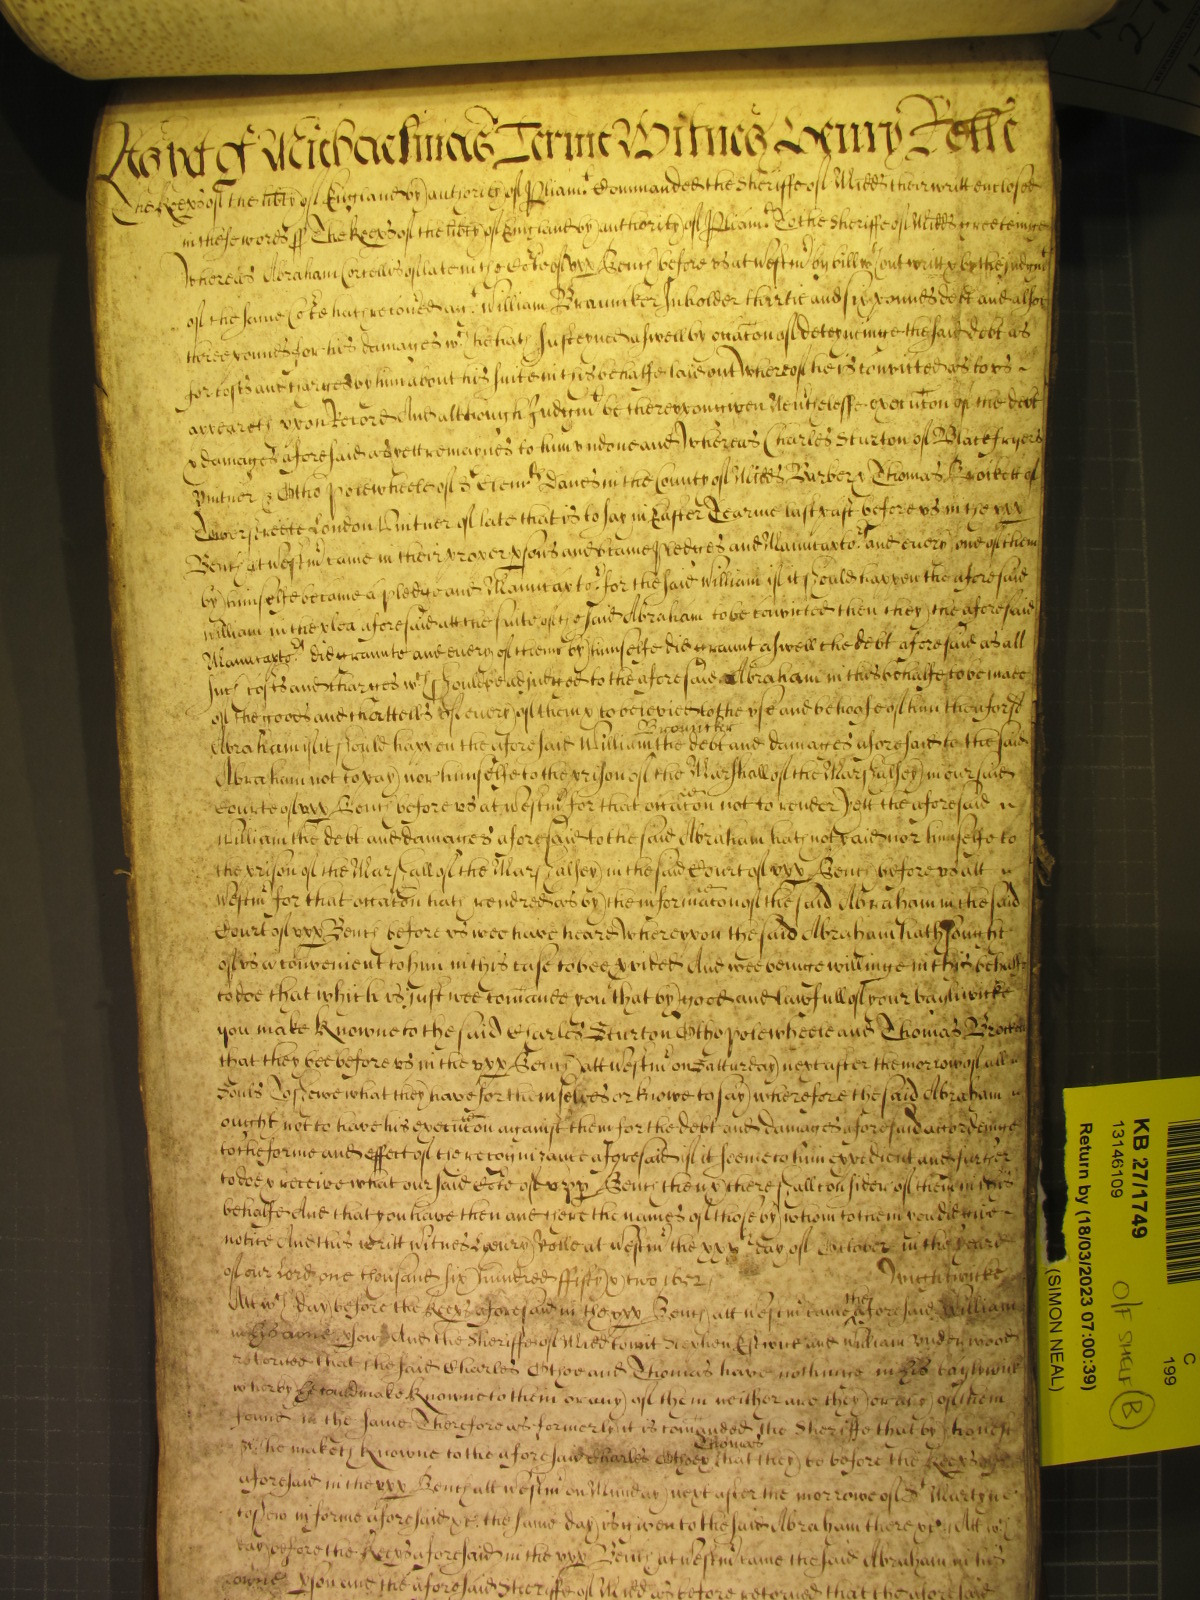 As yet of Michaelmas Terme Witnes Henry Rolle
The Keeps of the libty of England by authority of Pliamt Commanded the Sheriffe of Midds their writt enclosed
in these words ss The Keeps of the libty of England by authority of Pliamt To the Sheriffe of Midds greeteinge
Whereas Abraham of late in the Corte of vpp Bench before us at Westmr by bill wthout writt & by the Judgmt
of the same Corte hath recoued agt William Brauncker Inholder thirtie and six pounds debt and alsoe
three pounds for his damages wch he hath susteyned aswell by occacon of deteyneinge the said debt as
for costs and charges by him about his suite in this behalfe laid out Whereof he is convicted as to us
appeareth uppon Record And although Judgmt be thereuppon given Neutheless execucon of the debt
& damages aforesaid as yett remaynes to him undone and Whereas Charles Sturton of Blackfryers
Vintner & Otho Polewheele of St Clemt Danes in the County of Midds Barber & Thomas Brockett of
Towerstreete London Vintner of late that is to say in Easter Tearme last past before us in the vpp
Bench at Westmr came in their proper psons and became pledges and Maincaptors and every one of them
by himselfe became a pledge and Maincaptor for the said William if it should happen the aforesaid
William in the plea aforesaid att the suite of the said Abraham to be convicted then they the aforesaid
Maincaptors did graunte and every of them by himselfe did graunt aswell the debt aforesaid as all
such costs and charges wch should be adjudged to the aforesaid Abraham in this behalfe to be made
of the goods and chattells of every of them & to be levied to the use and behoofe of him the aforesd
Brauncker
Abraham if it should happen the aforesaid William the debt and damages aforesaid to the said
Abraham not to pay nor himselfe to the prison of the Marshall of the Marshalsey in our said
Courte of vpp Bench before us at Westmr for that occacon not to render Yett the aforesaid
William the debt and damages aforesaid to the said Abraham hath not paid nor himselfe to
the prison of the Marshall of the Marshalsey in the said Court of vpp Bench before us att
Westmr for that occacon hath rendred as by the informacon of the said Abraham in the said
Court of vpp Bench before us wee have heard Whereuppon the said Abraham hath sought
of us a convenient to him in this case to bee pvided And wee beinge willinge in this behalfe
to doe that which is just wee comaund you that by good and lawfull of your bayliwicke
you make knowne to the said Charles Sturton Otho polewheele and Thomas Brockett
that they bee before us in the vpp Bench att Westmr on Satturday next after the morrow of all
Souls To shewe what they have for themselves or knowe to say wherefore the said Abraham
ought not to have his execucon against them for the debt and damages aforesaid accordinge
to the forme and effect of the recognizance aforesaid if it seeme to him expedient and further
to doe & receive what our said Corte of vpp Bench then & there shall consider of them in this
behalfe And that you have then and there the names of those by whom to them you did give
notice And this writt Witnes Henry Rolle at Westmr the day of October in the yeare
of our Lord one thousand six hundred fiffty & two 1652 Wightwicke
Att wch day before the Keeps aforesaid in the vpp Bench att Westmr came the aforesaid William
in his owne pson And the Sheriffe of Midd to wit Stephen Estwick and William Underwood
retorned that the said Charles Otho and Thomas have nothinge in his baylywick
wherby he could make knowne to them or any of them neither are they or any of them
found in the same Therefore as formerly it is comanded the Sheriffe that by honest
Thomas
&c he make knowne to the aforesaid Charles Otho & that they be before the Keeps
aforesaid in the vpp Bench att Westmr on Munday next after the morrowe of St Martyne
to shew in forme aforesaid &c the same day is given to the said Abraham there &c Att wch
day before the Keeps aforesaid in the vpp Bench at Westmr came the said Abraham in his
owne pson and the aforesaid Sheriffe of Midd as before retorned that the aforesaid
KB 27/1749
13146109
Return by (18/03/2023 07:00:39)
(SIMON NEAL)
O/F SHELF B
C
199